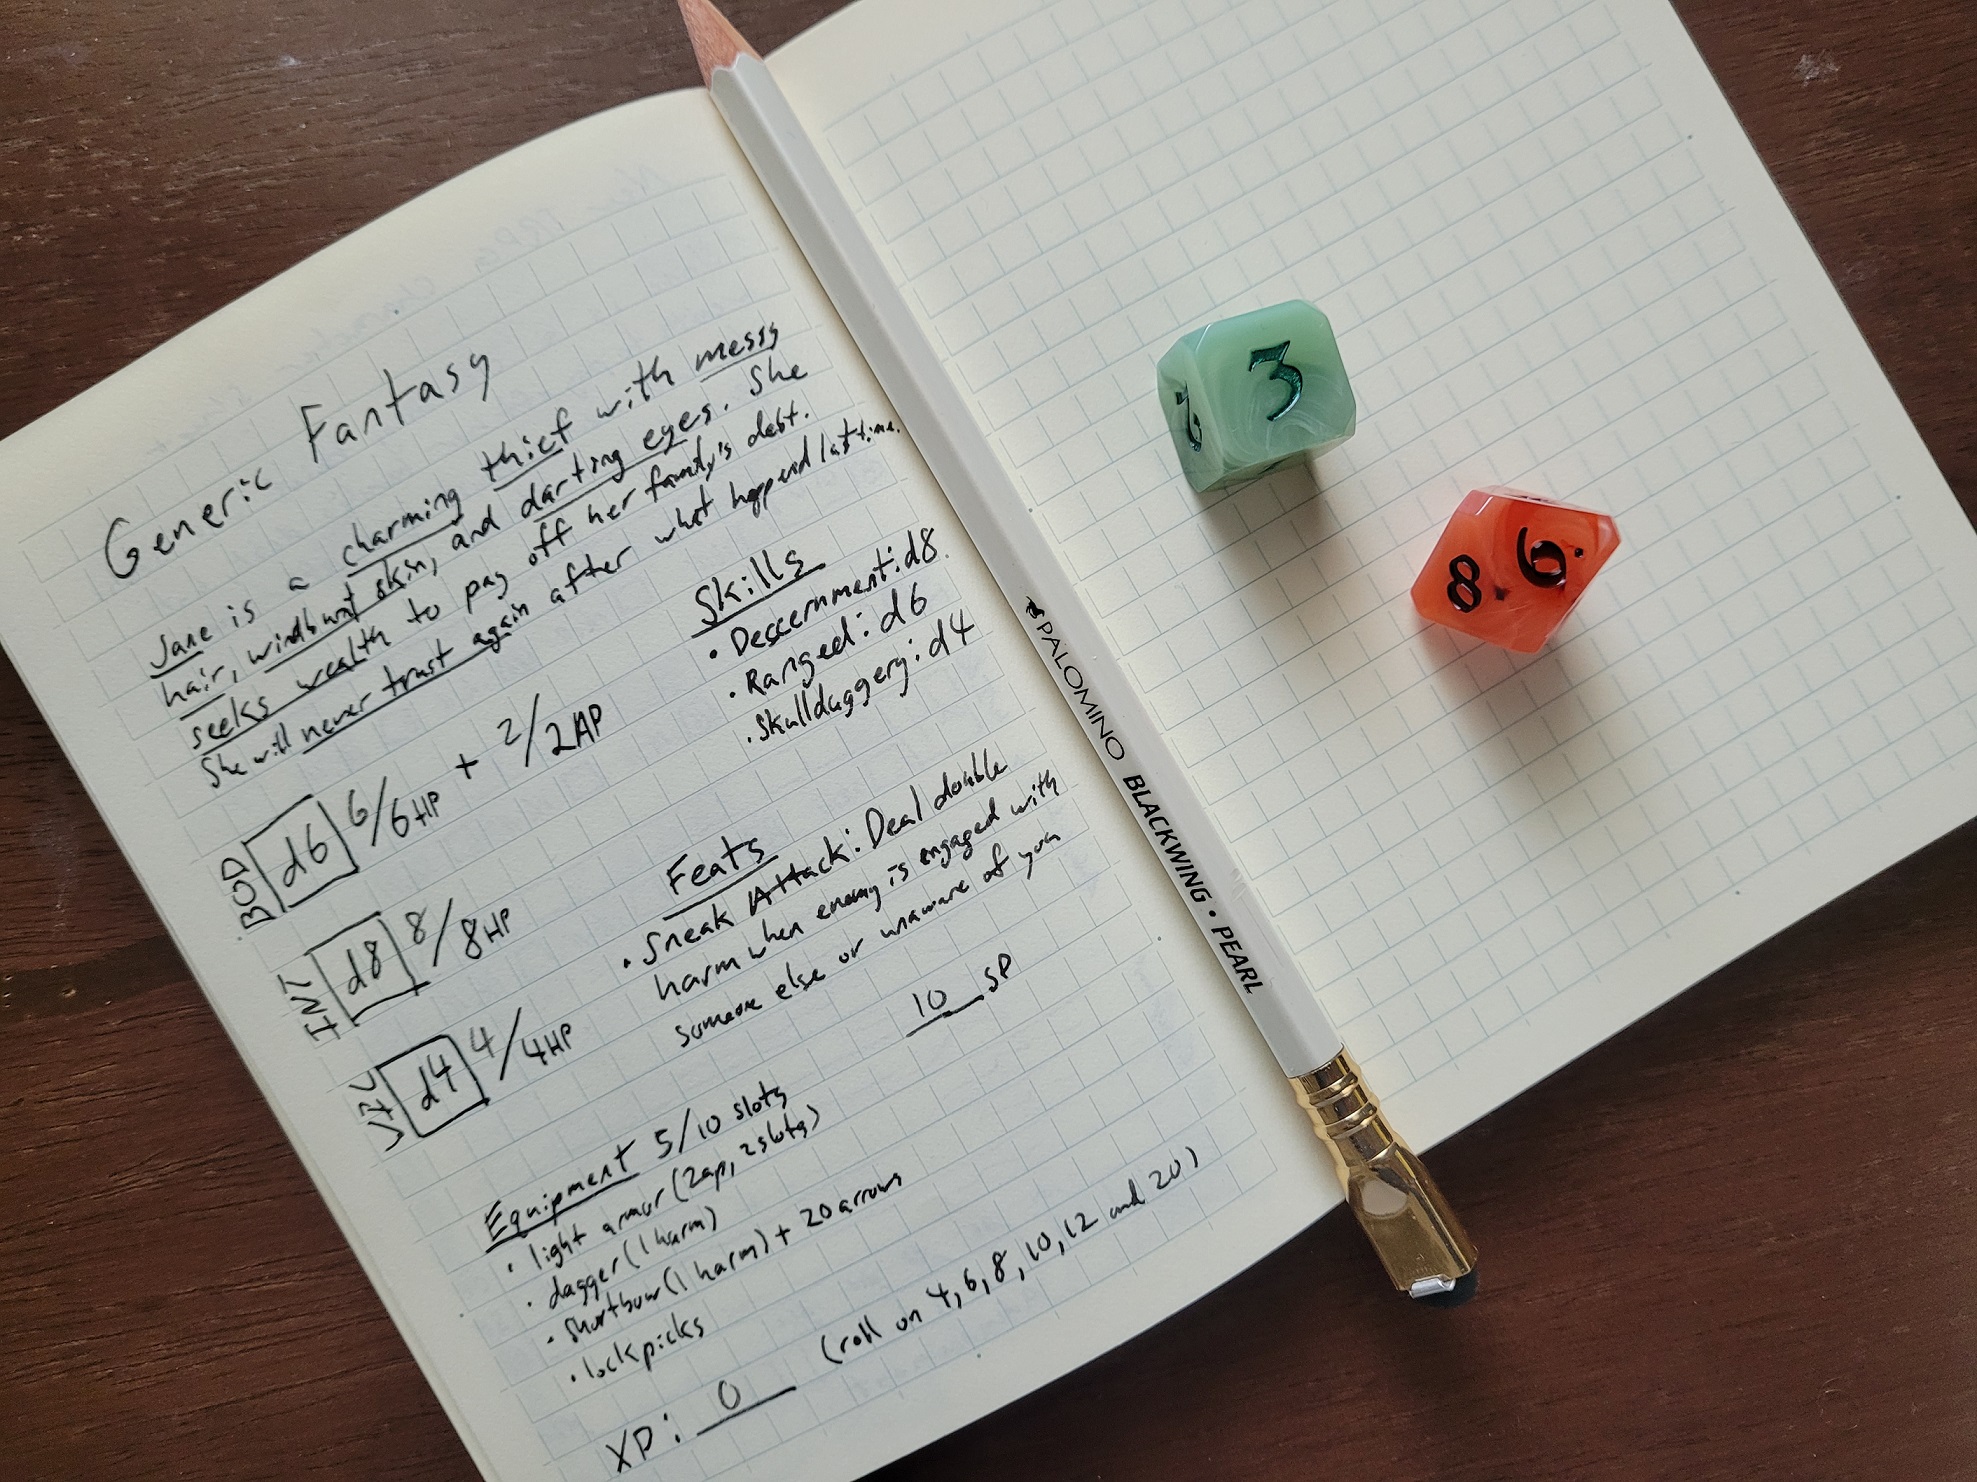 Generic Fantasy
Jane is a charming thief with messy
hair, windburnt skin, and darting eyes. She
seeks wealth to pay off her family's debt.
She will never trust again after what happend last time.
BOD d6 6/6HP + 2/2AP
INT d8 8/8HP
d4 4/4HP
Skills
• Descernment: d8
• Ranged: d6
• Skullduggery: d4
Feats
• Sneak Attack: Deal double
harm when enemy is engaged with
someone else or unaware of you
10 SP
Equipment 5/10 slots
• light armor (2ap, 2slots)
• dagger (1 harm)
• shortbow (1 harm) + 20 arrows
• lockpicks
XP: 0 (roll on 4, 6, 8, 10, 12 and 20)
PALOMINO BLACKWING • PEARL
3
8. 6.